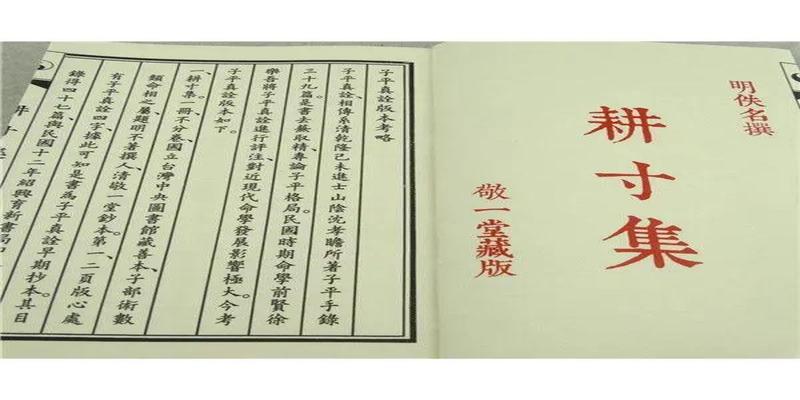 明佚名撰
耕寸集
敬一堂藏版
子平真詮版本考略
子平真詮、相傳系清乾隆己未進士山陰沈孝瞻所著子平手錄
三十九篇、是書去蕪取精、專論子平格局。民國時期命學前賢徐
樂吾將子平真詮進行評注、對近現代命學發展影響極大。今考
子平真詮版本如下。
一、耕寸集。一冊不分卷、國立台灣中央圖書館藏善本、子部術數
類命相之屬、題明不著撰人、清敬一堂鈔本。第一、二頁版心處
有子平真詮四字、據此可知是書為子平真詮早期抄本。其目
錄得四十七篇、與民國十二年紹興育新書局